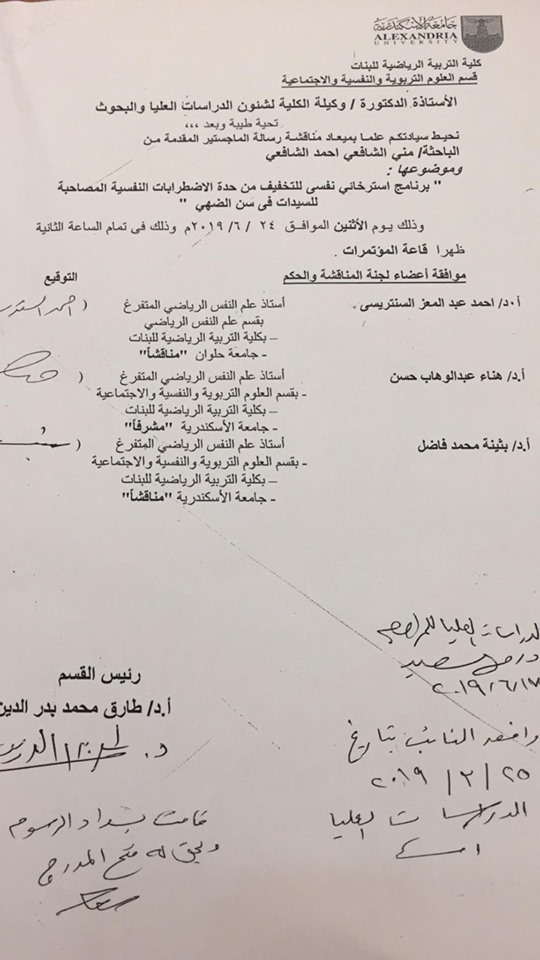 جامعة الإسكندرية
ALEXANDRIA
UNIVERSITY
كلية التربية الرياضية للبنات
قسم العلوم التربوية والنفسية والاجتماعية
الأستاذة الدكتورة / وكيلة الكلية لشئون الدراسات العليا والبحوث
تحية طيبة وبعد ،،،
نحيط سيادتكم علما بميعاد مناقشة رسالة الماجستير المقدمة من
الباحثة/ مني الشافعي احمد الشافعي
وموضوعها :
" برنامج استرخائي نفسى للتخفيف من حدة الاضطرابات النفسية المصاحبة
للسيدات فى سن الضهي "
وذلك يوم الأثنين الموافق ٢٤ / ٦ / ٢٠١٩م وذلك فى تمام الساعة الثانية
ظهرا قاعة المؤتمرات .
موافقة أعضاء لجنة المناقشة والحكم
التوقيع
أ.د/ احمد عبد المعز السنتريسى
أستاذ علم النفس الرياضي المتفرغ
بقسم علم النفس الرياضي
– بكلية التربية الرياضية للبنات
- جامعة حلوان "مناقشاً"
أ.د/ هناء عبدالوهاب حسن
أستاذ علم النفس الرياضي المتفرغ
- بقسم العلوم التربوية والنفسية والاجتماعية
– بكلية التربية الرياضية للبنات
- جامعة الأسكندرية "مشرفاً"
أ.د/ بثينة محمد فاضل
أستاذ علم النفس الرياضي المتفرغ
- بقسم العلوم التربوية والنفسية والاجتماعية
– بكلية التربية الرياضية للبنات
- جامعة الأسكندرية "مناقشاً"
الدراسات العليا للمراجعة
٢٠١٩/٦/١٧
رئيس القسم
أ.د/ طارق محمد بدر الدين
وافق النائب بتاريخ
٢٥ / ٣ / ٢٠١٩
الدراسات العليا
قامت بسداد الرسوم